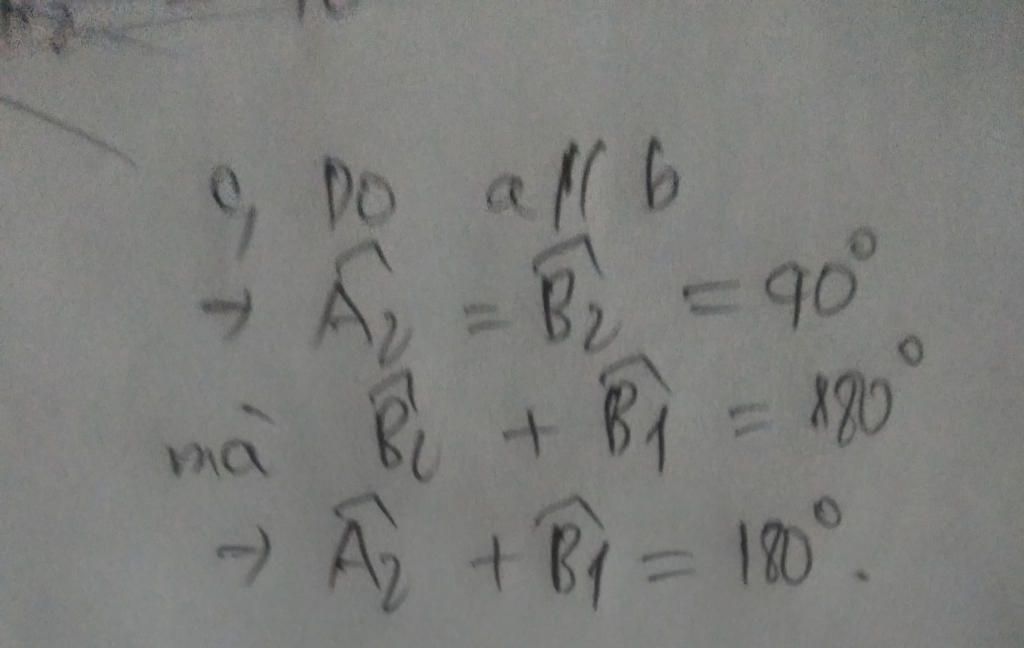 c, DO a // b
→ Â₂ = B̂₂ = 90°
mà B̂₂ + B̂₁ = 180°
→ Â₂ + B̂₁ = 180°.